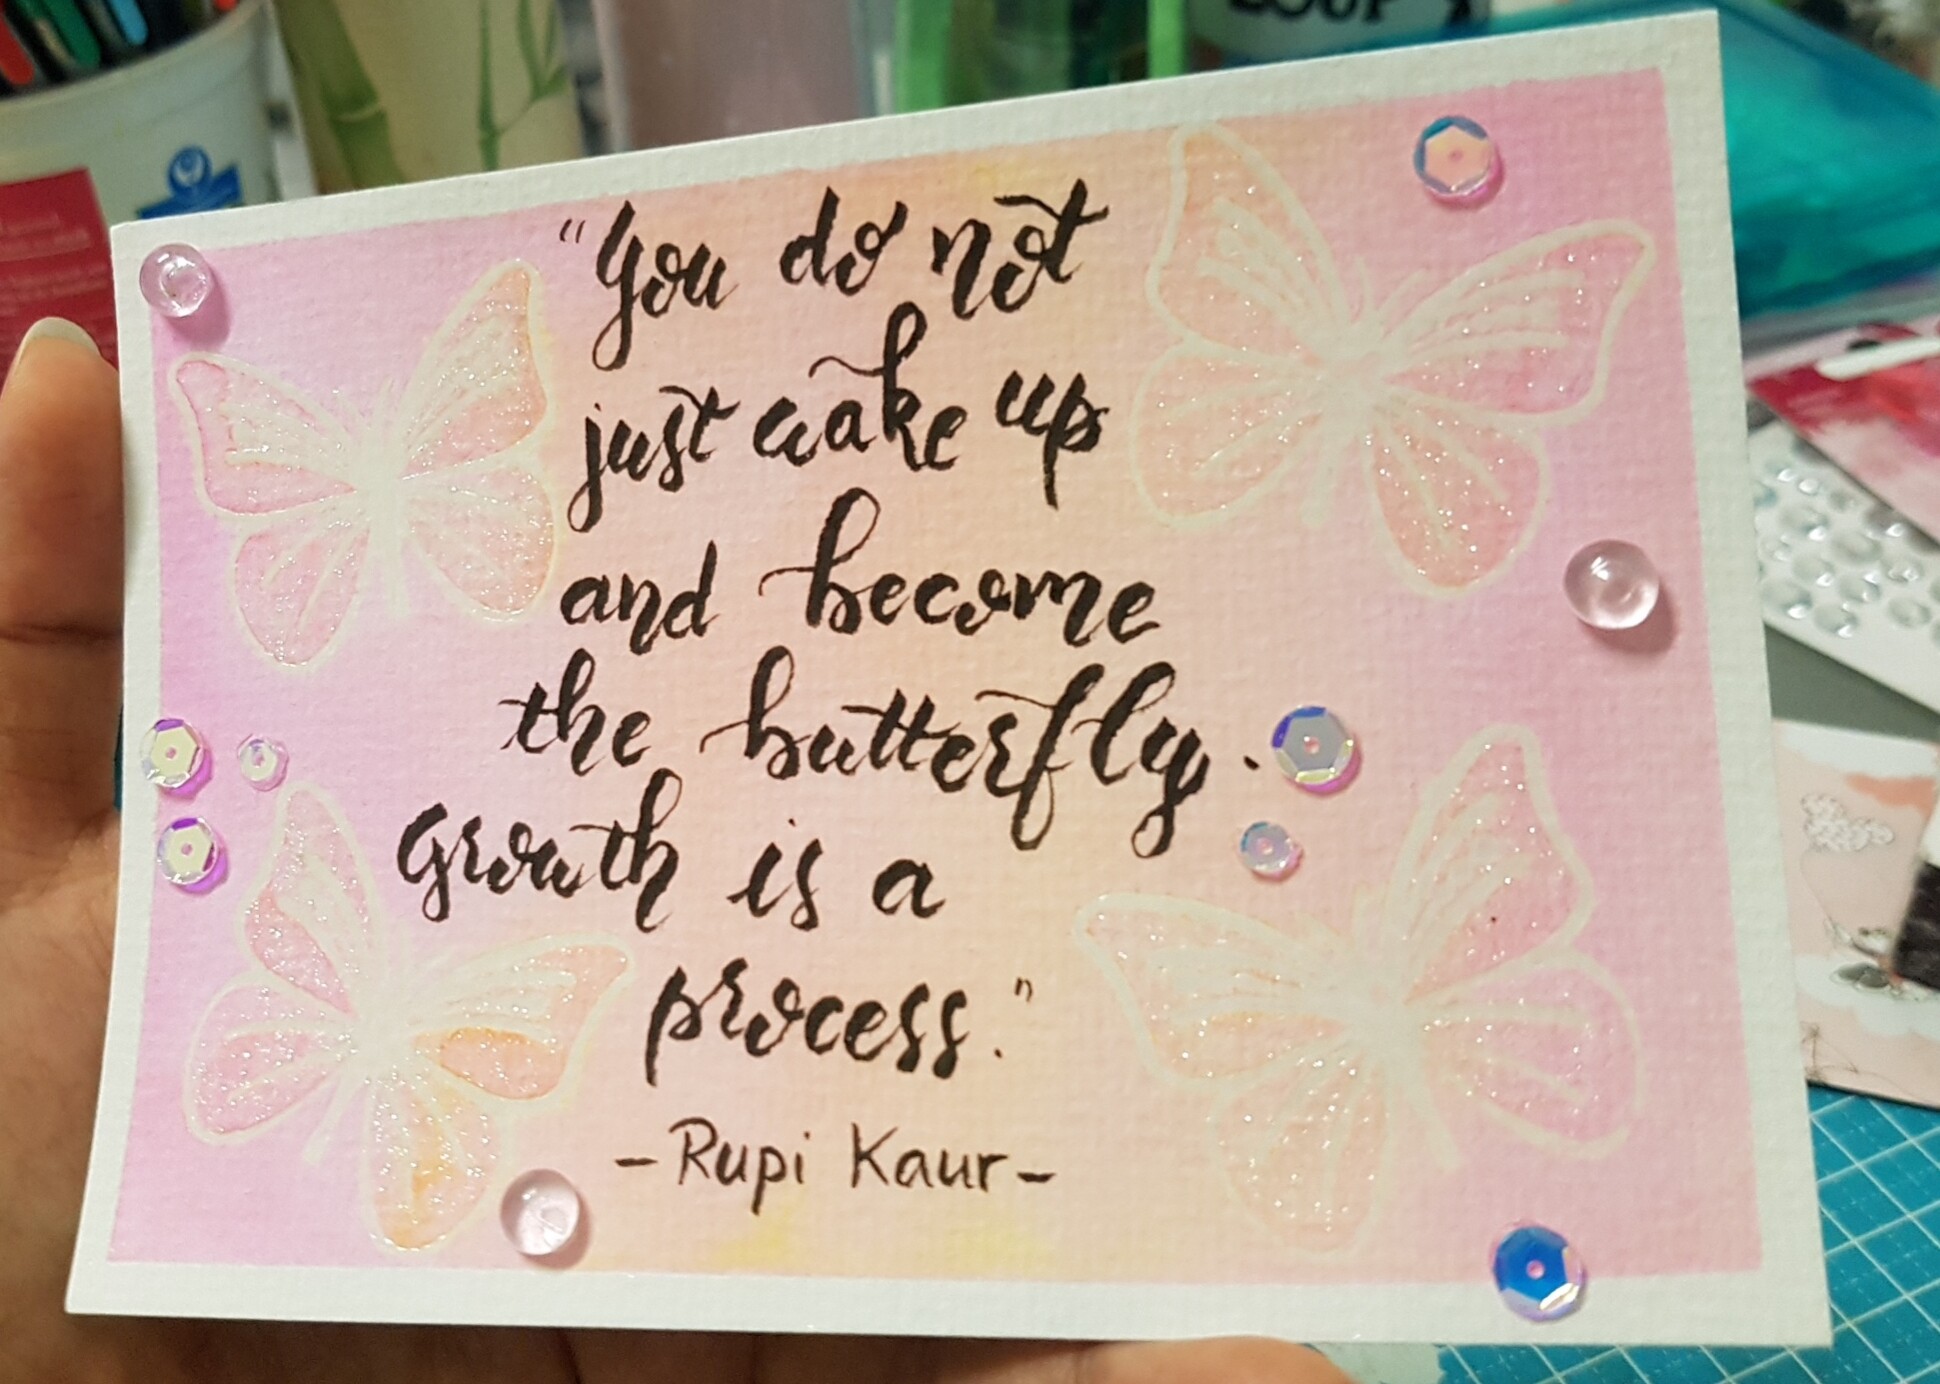 "You do not
just wake up
and become
the butterfly.
Growth is a
process."
- Rupi Kaur -